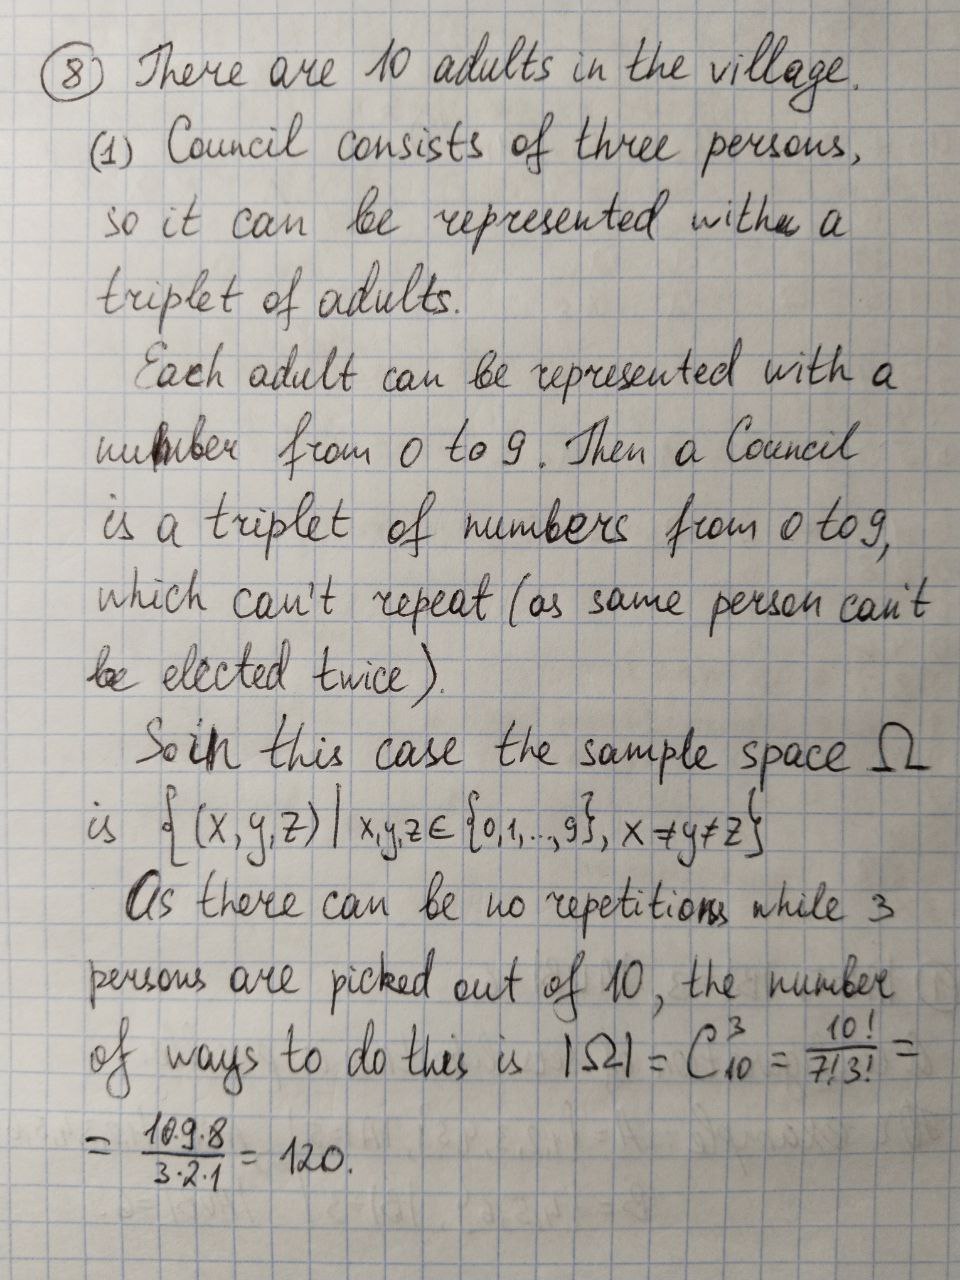 8 There are 10 adults in the village.
(1) Council consists of three persons,
so it can be represented with a
triplet of adults.
Each adult can be represented with a
number from 0 to 9. Then a Council
is a triplet of numbers from 0 to 9,
which can't repeat (as same person can't
be elected twice).
So in this case the sample space Ω
is {(x,y,z) | x,y,z ∈ {0,1,...,9}, x ≠ y ≠ z}
As there can be no repetitions while 3
persons are picked out of 10, the number
of ways to do this is |Ω| = C₁₀³ = 10!/7!3! =
= 10·9·8/3·2·1 = 120.